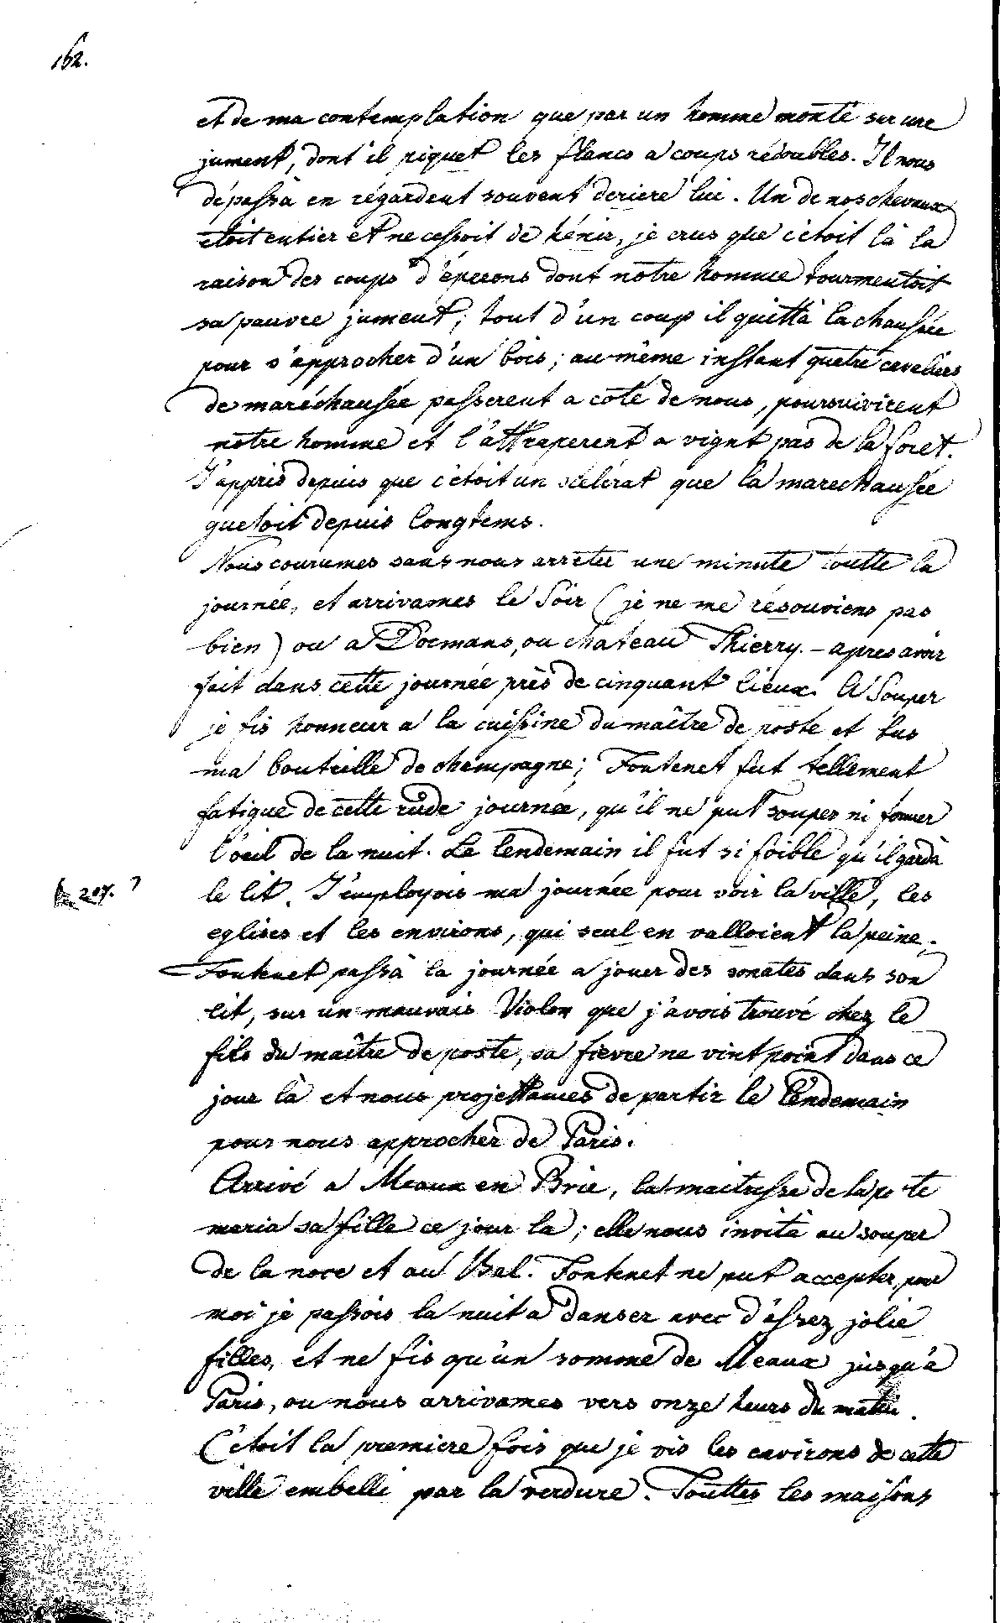 162.
et de ma contemplation que par un homme monté sur une
jument, dont il piquet les flancs a coups rédoublés. Il nous
dépassà en régardent souvent deriere lui. Un de nos chevaux
etoit entier et ne cessoit de hénir, je crus que c'etoit là la
raison des coups d'éperons dont notre homme tourmentoit
sa pauvre jument; tout d'un coup il quittà la chausée
pour s'approcher d'un bois; au même instant quatre cavaliers
de maréchausée passerent a coté de nous, poursuivirent
notre homme et l'attraperent a vignt pas de la foret.
J'appris depuis que c'étoit un scélérat que la marechausée
guetoit depuis longtems.
Nous courumes sans nous arrêter une minute toutte la
journée, et arrivames le soir (je ne me résouviens pas
bien) ou a Dormans, ou chateau Thierry. - apres avoir
fait dans cette journée près de cinquant lieux. A Souper
je fis honneur a la cuisine du maître de poste et bus
ma bouteille de champagne; Fontenet fut tellement
fatigué de cette rude journée, qu'il ne put souper ni fermer
l'oeil de la nuit. Le lendemain il fut si foible qu'il gardà
207. ?
le lit. J'employois ma journée pour voir la ville, les
eglises et les environs, qui seul en valloient la peine.
Fontenet passà la journée a jouer des sonates dans son
lit, sur un mauvais Violon que j'avois trouvé chez le
fils du maître de poste, sa fievre ne vint point dans ce
jour là et nous projettames de partir le lendemain
pour nous approcher de Paris.
Arrivé a Meaux en Brie, la maitresse de la poste
maria sa fille ce jour la; elle nous invità au souper
de la noce et au Bal. Fontenet ne put accepter, pour
moi je passois la nuit a danser avec d'assez jolie
filles, et ne fis qu'un somme de Meaux jusqu'a
Paris, ou nous arrivames vers onze heurs du matin.
C'étoit la premiere fois que je vis les environs de cette
ville embelli par la verdure. Touttes les maisons